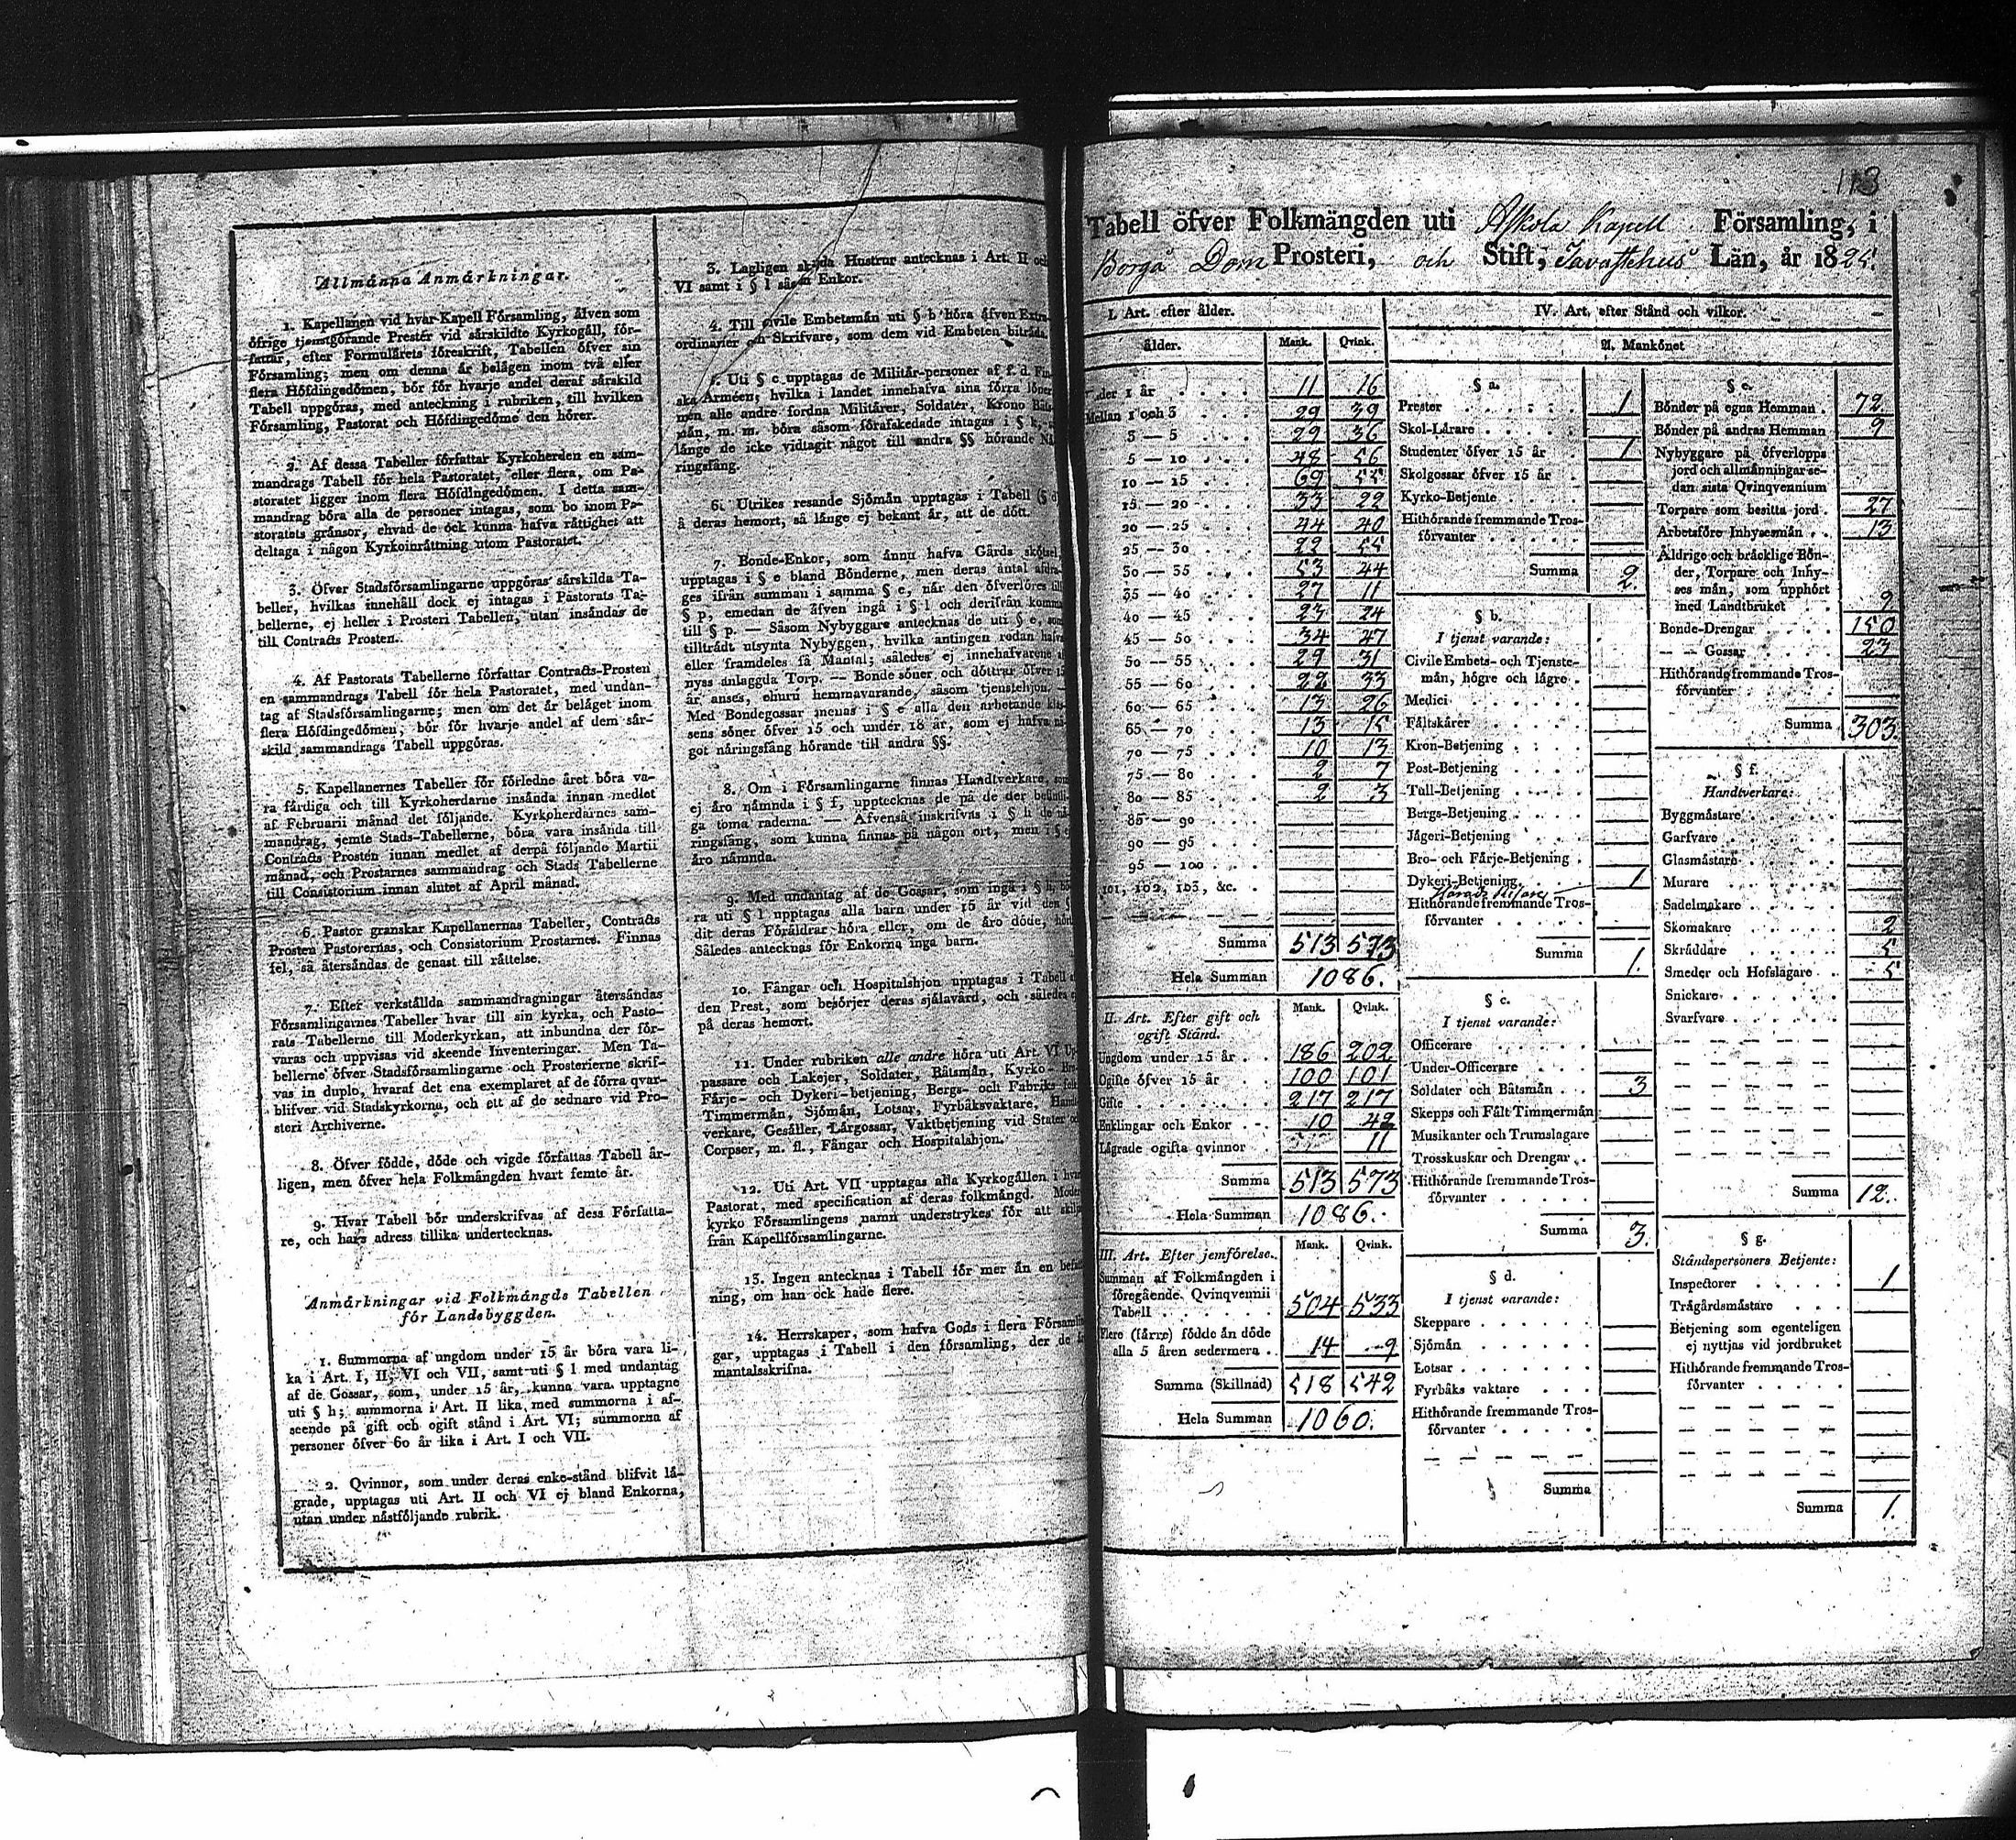 Allmänna Anmärkningar.
1. Kapellanen vid hvar Kapell Församling, äfven som
öfrige tjenstgörande Prester vid särskildte Kyrkogäll, för-
fattar, efter Formulärets föreskrift, Tabellen öfver sin
Församling; men om denna är belägen inom två eller
flera Höfdingedömen, bör för hvarje andel deraf särskild
Tabell uppgöras, med anteckning i rubriken, till hvilken
Församling, Pastorat och Höfdingedöme den hörer.
2. Af dessa Tabeller författar Kyrkoherden en sam-
mandrags Tabell för hela Pastoratet, eller flera, om Pa-
storatet ligger inom flera Höfdingedömen. I detta sam-
mandrag böra alla de personer intagas, som bo inom Pa-
storatets gränsor, ehvad de ock kunna hafva rättighet att
deltaga i någon Kyrkoinrättning utom Pastoratet.
3. Öfver Stadsförsamlingarne uppgöras särskilda Ta-
beller, hvilkas innehåll dock ej intagas i Pastorats Ta-
bellerne, ej heller i Prosteri Tabellen, utan insändas de
till Contracts Prosten.
4. Af Pastorats Tabellerne författar Contracts-Prosten
en sammandrags Tabell för hela Pastoratet, med undan-
tag af Stadsförsamlingarne; men om det är beläget inom
flera Höfdingedömen, bör för hvarje andel af dem sär-
skild sammandrags Tabell uppgöras.
5. Kapellanernes Tabeller för förledne året böra va-
ra färdiga och till Kyrkoherdarne insända innan medlet
af Februarii månad det följande. Kyrkoherdarnes sam-
mandrag, jemte Stads-Tabellerne, böra vara insända till
Contracts Prosten innan medlet af derpå följande Martii
månad, och Prostarnes sammandrag och Stads Tabellerne
till Consistorium innan slutet af April månad.
6. Pastor granskar Kapellanernas Tabeller, Contracts
Prosten Pastorernas, och Consistorium Prostarnes. Finnas
fel, så återsändas de genast till rättelse.
7. Efter verkställda sammandragningar återsändas
Församlingarnes Tabeller hvar till sin kyrka, och Pasto-
rats Tabellerne till Moderkyrkan, att inbundna der för-
varas och uppvisas vid skeende Inventeringar. Men Ta-
bellerne öfver Stadsförsamlingarne och Prosterierne skrif-
vas in duplo, hvaraf det ena exemplaret af de förra qvar-
blifver vid Stadskyrkorna, och ett af de sednare vid Pro-
steri Archiverne.
8. Öfver födde, döde och vigde författas Tabell år-
ligen, men öfver hela Folkmängden hvart femte år.
9. Hvar Tabell bör underskrifvas af dess Författa-
re, och hans adress tillika undertecknas.
Anmärkningar vid Folkmängds Tabellen
för Landsbyggden.
1. Summorna af ungdom under 15 år böra vara li-
ka i Art. I, II, VI och VII, samt uti § l med undantag
af de Gossar, som, under 15 år, kunna vara upptagne
uti § h; summorna i Art. II lika med summorna i af-
seende på gift och ogift stånd i Art. VI; summorna af
personer öfver 60 år lika i Art. I och VII.
2. Qvinnor, som under deras enke-stånd blifvit lä-
grade, upptagas uti Art. II och VI ej bland Enkorna,
utan under nästföljande rubrik.
3. Lagligen skilda Hustrur antecknas i Art. II och
VI samt i § l såsom Enkor.
4. Till civile Embetsmän uti § b höra äfven Extra-
ordinarier och Skrifvare, som dem vid Embeten biträda.
5. Uti § c upptagas de Militär-personer af f. d. Fin-
ska Arméen, hvilka i landet innehafva sina förra löner
men alle andre fordna Militärer, Soldater, Krono Båts-
män, m. m. böra såsom förafskedade intagas i § k,
länge de icke vidtagit något till andra §§ hörande Nä-
ringsfång.
6. Utrikes resande Sjömän upptagas i Tabell (§ d)
å deras hemort, så länge ej bekant är, att de dött.
7. Bonde-Enkor, som ännu hafva Gårds skötsel,
upptagas i § e bland Bönderne, men deras antal afdra-
ges ifrån summan i samma § e, när den öfverföres till
§ p, emedan de äfven ingå i § l och derifrån komma
till § p. — Såsom Nybyggare antecknas de uti § e, som
tillträdt utsynta Nybyggen, hvilka antingen redan hafva
eller framdeles få Mantal; således ej innehafvarene af
nyss anlaggda Torp. — Bonde söner och döttrar öfver 15
år anses, ehuru hemmavarande, såsom tjenstehjon. —
Med Bondegossar menas i § e alla den arbetande klas-
sens söner öfver 15 och under 18 år, som ej hafva nå-
got näringsfång hörande till andra §§.
8. Om i Församlingarne finnas Handtverkare, som
ej äro nämnda i § f, upptecknas de på de der befintli-
ga toma raderna. — Äfvenså inskrifvas i § h de nä-
ringsfång, som kunna finnas på någon ort, men i § e
äro nämnda.
9. Med undantag af de Gossar, som ingå i § h, bö-
ra uti § l upptagas alla barn under 15 år vid den §
dit deras Föräldrar höra eller, om de äro döde, hört
Således antecknas för Enkorna inga barn.
10. Fångar och Hospitalshjon upptagas i Tabell af
den Prest, som besörjer deras själavård, och således ej
på deras hemort.
11. Under rubriken alle andre höra uti Art. VI Up-
passare och Lakejer, Soldater, Båtsmän, Kyrko- Bro-
Färje- och Dykeri-betjening, Bergs- och Fabriks folk
Timmermän, Sjömän, Lotsar, Fyrbåksvaktare, Handt-
verkare, Gesäller, Lärgossar, Vaktbetjening vid Stater och
Corpser, m. fl., Fångar och Hospitalshjon.
12. Uti Art. VII upptagas alla Kyrkogällen i hvart
Pastorat, med specification af deras folkmängd. Moder-
kyrko Församlingens namn understrykes för att skilja
från Kapellförsamlingarne.
13. Ingen antecknas i Tabell för mer än en befatt-
ning, om han ock hade flere.
14. Herrskaper, som hafva Gods i flera Församlin-
gar, upptagas i Tabell i den församling, der de äro
mantalsskrifna.
113
Tabell öfver Folkmängden uti Askola Kapell Församling, i
Borgå Dom Prosteri, och Stift, Tavastehus Län, år 1825.
I. Art. efter ålder.
ålder. Mank. Qvink.
Under 1 år 11 16
Mellan 1 och 3 29 39
3 — 5 29 36
5 — 10 48 56
10 — 15 69 55
15 — 20 33 22
20 — 25 44 40
25 — 30 22 55
30 — 35 53 44
35 — 40 27 11
40 — 45 23 24
45 — 50 34 47
50 — 55 29 31
55 — 60 22 33
60 — 65 13 26
65 — 70 13 15
70 — 75 10 13
75 — 80 2 7
80 — 85 2 3
85 — 90
90 — 95
95 — 100
101, 102, 103, &c.
Summa 513 573
Hela Summan 1086.
II. Art. Efter gift och
ogift Stånd. Mank. Qvink.
Ungdom under 15 år 186 202
Ogifte öfver 15 år 100 101
Gifte 217 217
Enklingar och Enkor 10 42
Lägrade ogifta qvinnor 11
Summa 513 573
Hela Summan 1086.
III. Art. Efter jemförelse. Mank. Qvink.
Summan af Folkmängden i
föregående Qvinqvennii
Tabell 504 533
Flere (färre) födde än döde
alla 5 åren sedermera 14 9
Summa (Skillnad) 518 542
Hela Summan 1060.
IV. Art. efter Stånd och vilkor.
A. Mankönet
§ a.
Prester 1
Skol-Lärare
Studenter öfver 15 år 1
Skolgossar öfver 15 år
Kyrko-Betjente
Hithörande fremmande Tros-
förvanter
Summa 2.
§ b.
I tjenst varande:
Civile Embets- och Tjenste-
män, högre och lägre
Medici
Fältskärer
Kron-Betjening
Post-Betjening
Tull-Betjening
Bergs-Betjening
Jägeri-Betjening
Bro- och Färje-Betjening
Dykeri-Betjening 1
Hithörande fremmande Tros-
förvanter
Summa 1.
§ c.
I tjenst varande:
Officerare
Under-Officerare
Soldater och Båtsmän 3
Skepps och Fält Timmermän
Musikanter och Trumslagare
Trosskuskar och Drengar
Hithörande fremmande Tros-
förvanter
Summa 3.
§ d.
I tjenst varande:
Skeppare
Sjömän
Lotsar
Fyrbåks vaktare
Hithörande fremmande Tros-
förvanter
Summa
§ e.
Bönder på egna Hemman 72
Bönder på andras Hemman 9
Nybyggare på öfverlopps
jord och allmänningar se-
dan sista Qvinqvennium
Torpare som besitta jord 27
Arbetsföre Inhysesmän 13
Äldrige och bräcklige Bön-
der, Torpare och Inhy-
ses män, som upphört
med Landtbruket 9
Bonde-Drengar 150
— — Gossar 23
Hithörande fremmande Tros-
förvanter
Summa 303.
§ f.
Handtverkare:
Byggmästare
Garfvare
Glasmästare
Murare
Sadelmakare
Skomakare 2
Skräddare 5
Smeder och Hofslagare 5
Snickare
Svarfvare
Summa 12.
§ g.
Ståndspersoners Betjente:
Inspectorer 1
Trägårdsmästare
Betjening som egenteligen
ej nyttjas vid jordbruket
Hithörande fremmande Tros-
förvanter
Summa 1.